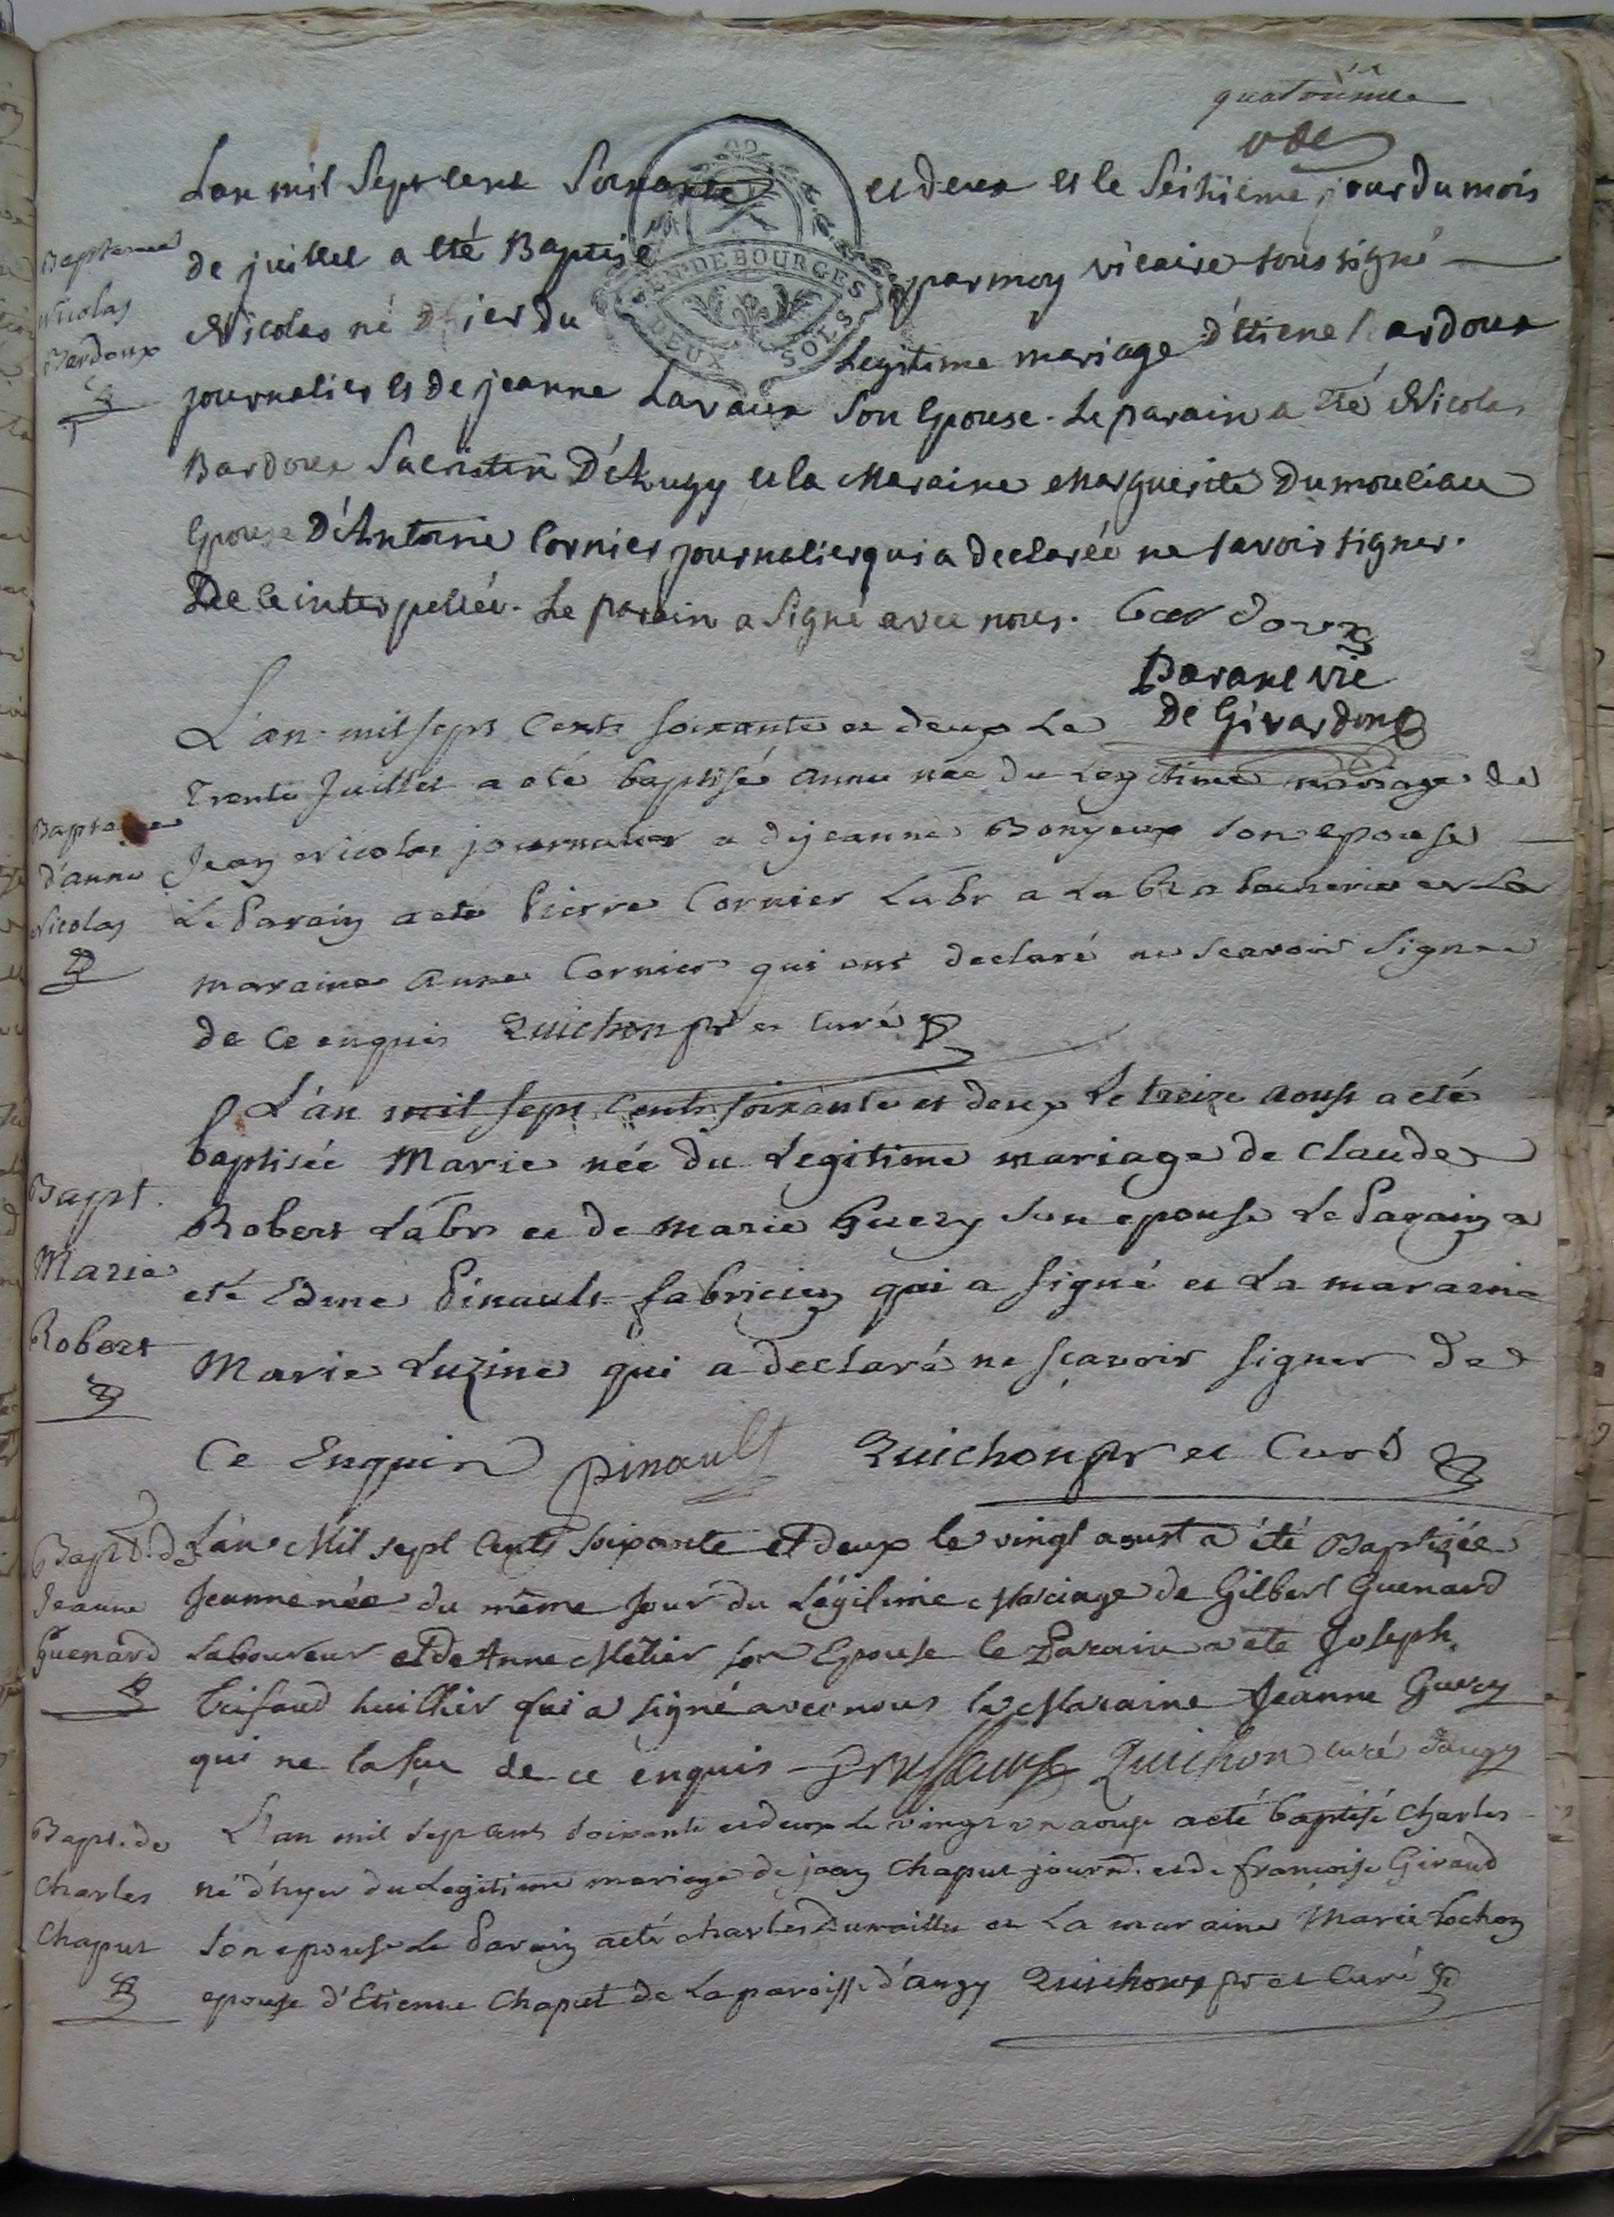 quatriême
Lan mil Sept cent Soixante et deux et le Seiziême jour du mois
de juillet a eté Baptisé par moy vicaire soussigné
Nicolas né d'hier du Legitime mariage d'Etiene Bardoux
journalier et de jeanne Lavaux Son Epouse. Le parain a eté Nicolas
Bardoux Sacristin D'Augy et la Maraine Marguerite Dumouliau
Epouse D'Antoine Cornier journalier qui a declarée ne savoir signer.
De ce interpellée. Le parain a Signé avec nous. bardoux
Bapteme
Nicolas
Bardoux
De Girardon
L'an mil sept Cents soixante et deux Le
Trente Juillet a eté baptisé Anne née du Legitime mariage de
Jean Nicolas journalier et de jeanne Bonyeux son epouse
Le Parain a eté Pierre Cornier Labr a La et La
maraine Anne Cornier qui ont declaré ne scavoir Signer
de Ce enquis Quichon ptr et Curé
Bapteme
d'anne
Nicolas
L'an mil sept Cents soixante et deux Le treize aoust a eté
baptisée Marie née du Legitime mariage de Claude
Robert Labr et de Marie Guery son epouse Le Parain a
eté Edme Pinault fabricien qui a signé et La maraine
Marie Luzine qui a declaré ne sçavoir signer de
Ce Enquis pinault Quichon ptr et Curé
Bapt.
Marie
Robert
L'an Mil sept Cents soixante et deux le vingt aoust a été Baptisée
Jeanne née du même Jour du Légitime Mariage de Gilbert Guenard
Laboureur et de Anne Métier son Epouse le Parain a eté Joseph
Trifaud huillier qui a signé avec nous la Maraine Jeanne Guery
qui ne la sçu de ce enquis Quichon curé d'augy
Bapt. de
Jeanne
Guenard
L'an mil sept cent soixante et deux Le vingt un aoust a eté baptisé Charles
né d'hyer du Legitime mariage de jean Chaput journ. et de francoise Giraud
son epouse Le Parain a eté charles Duraillu et La maraine Marie Lochon
epouse d'Etienne Chaput de La paroisse d'augy Quichon ptr et Curé
Bapt. de
Charles
Chaput
GEN. DE BOURGES
DEUX SOLS